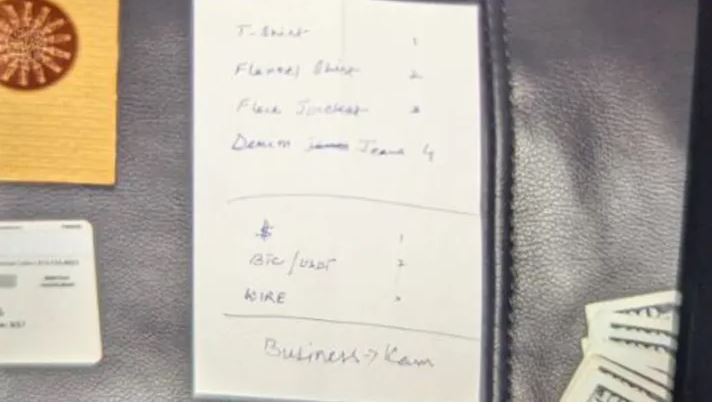 T-Shirt 1
Flannel Shirt 2
Jacket 3
Denim Jeans 4
$ 1
BTC/USDT 2
WIRE 3
Business → Kam